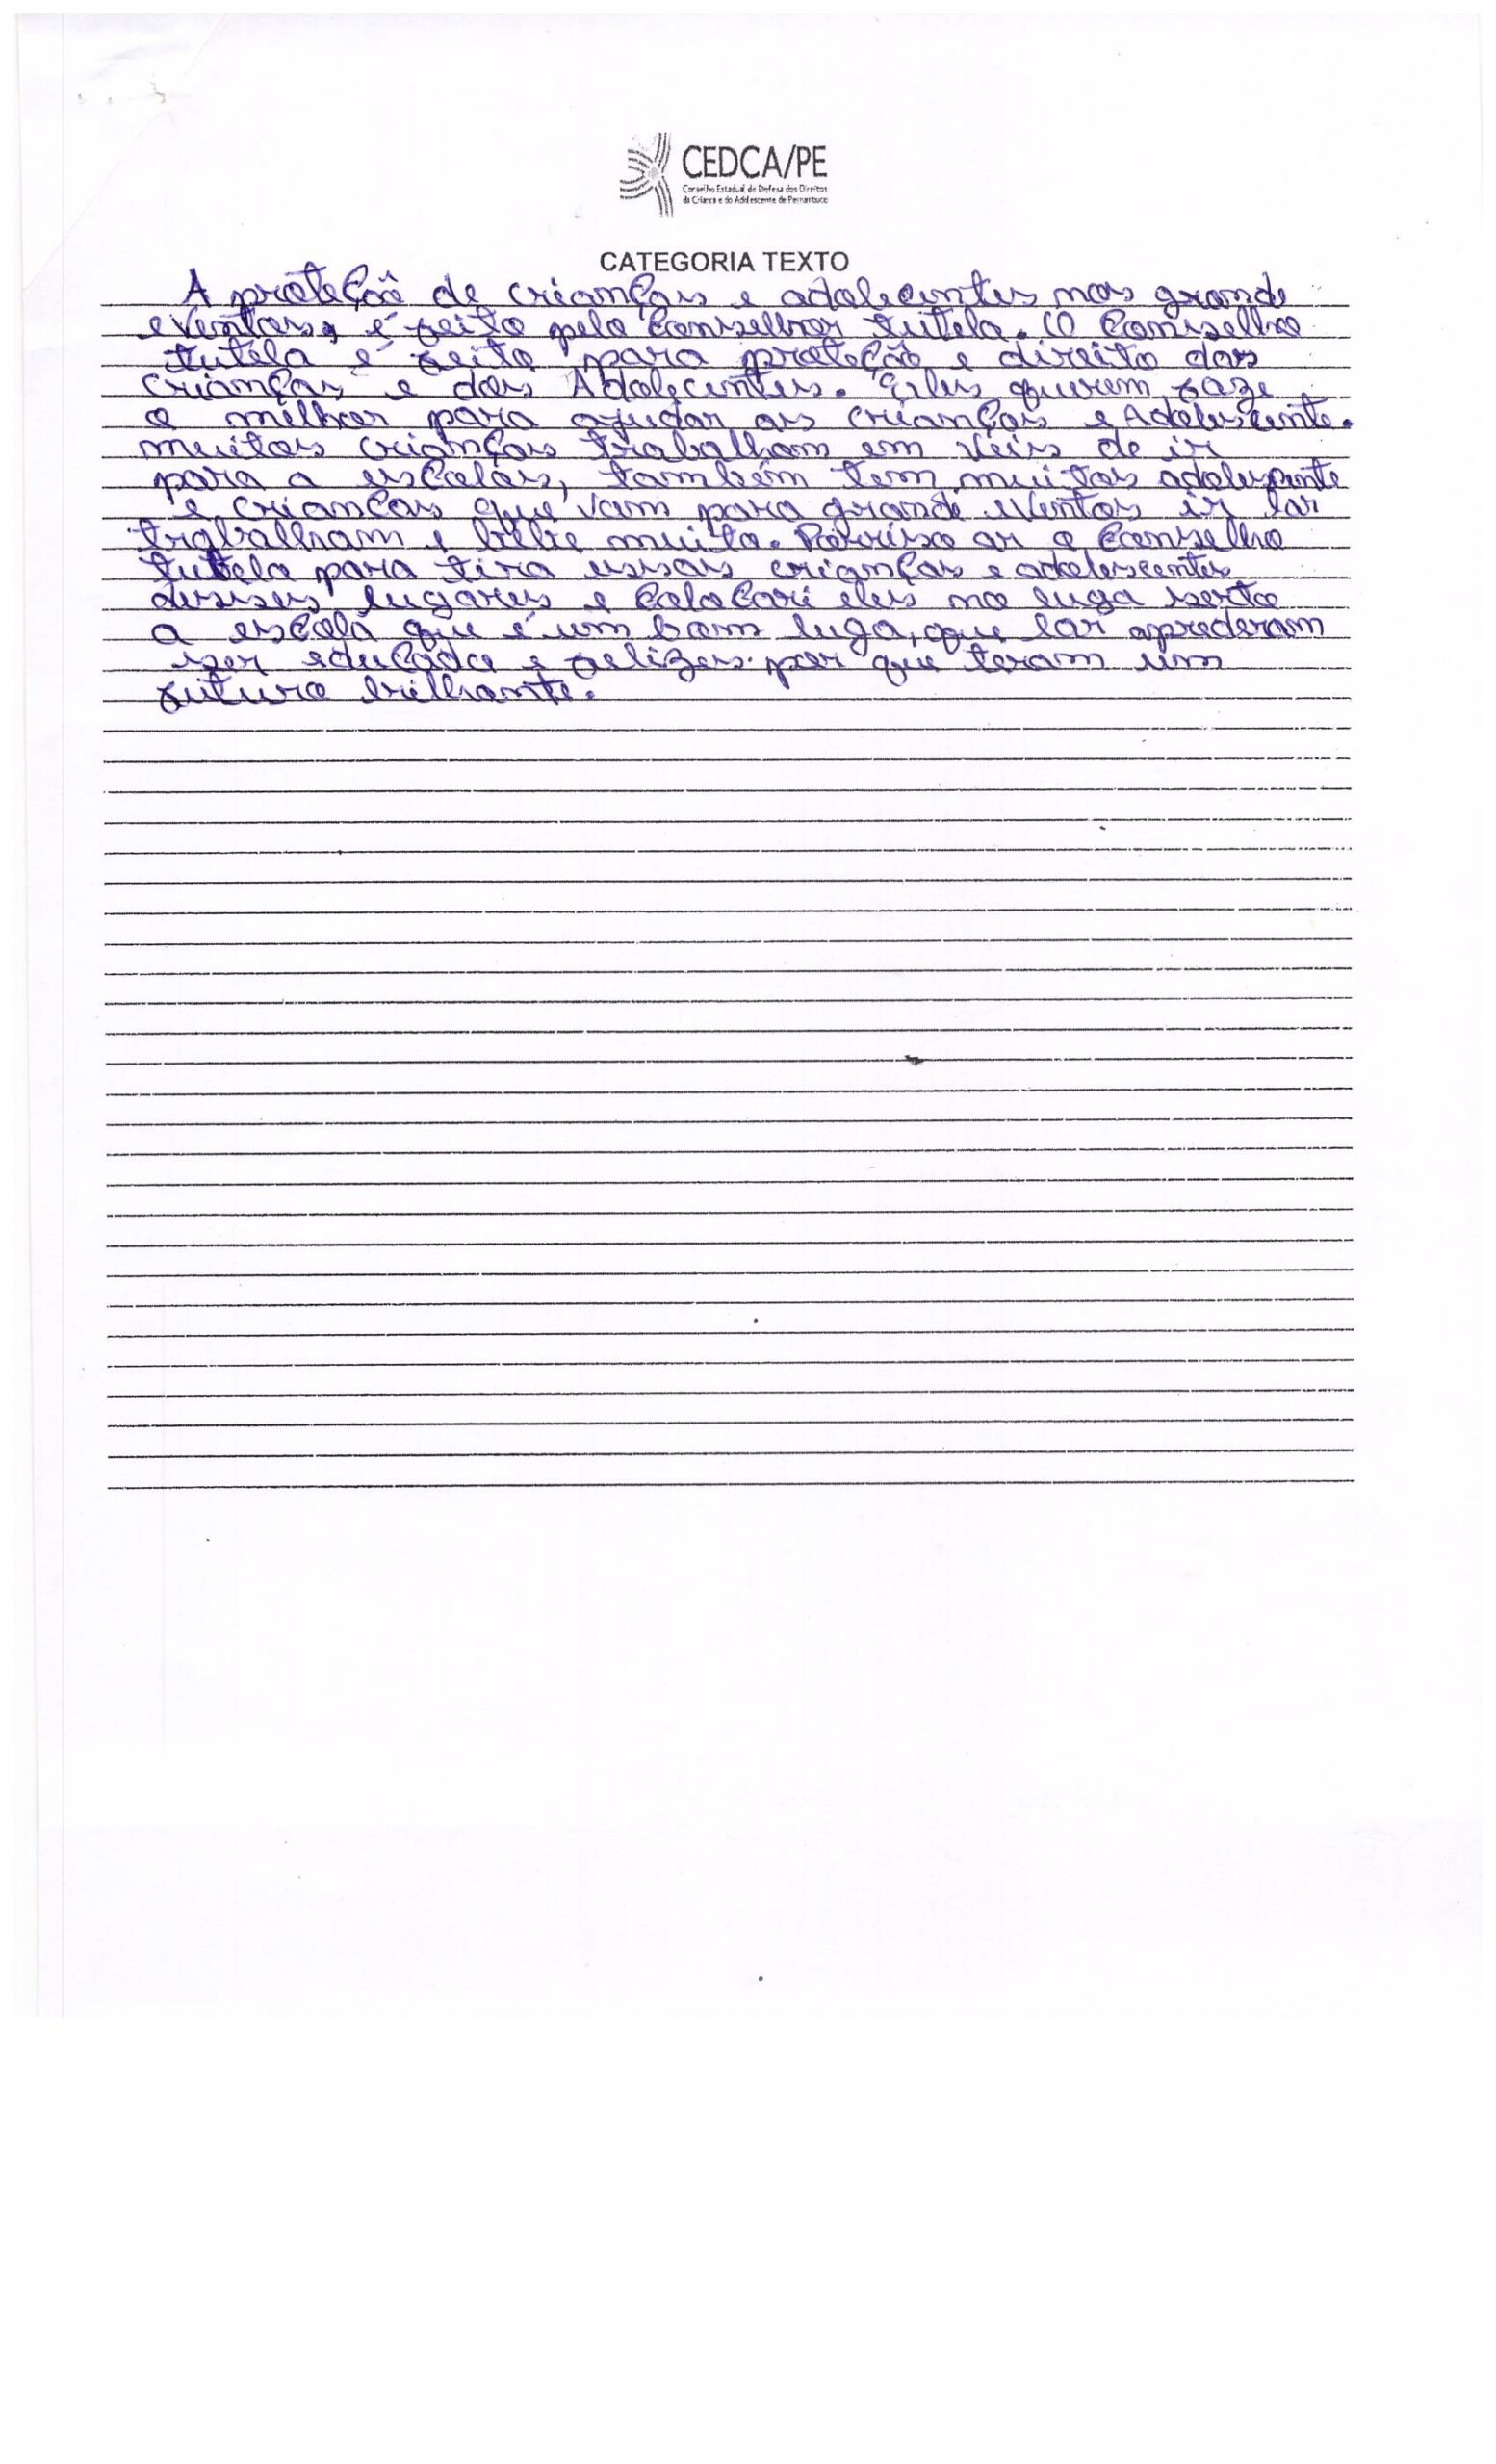 CEDCA/PE
Conselho Estadual de Defesa dos Direitos
da Criança e do Adolescente de Pernambuco
CATEGORIA TEXTO
A proteção de crianças e adolecentes nos grande
eventos, é feito pelo Conselhor tutela. O Conselho
tutela é feito para proteção e direito dos
crianças e dos Adolecentes. Eles querem faze
o melhor para ajudar as crianças e Adolescente.
muitas crianças trabalham em veis de ir
para a escolas, também tem muitos adolescente
e criancas que vam para grande eventos ir lar
trabalham e bebe muito. Porriso ar o Conselho
tutela para tira essas crianças e adolescentes
desses lugares e Colocari eles no luga serto
a escola que é um bom luga, que lar aprederam
ser educado e felizes. por que teram um
futuro brilhante.